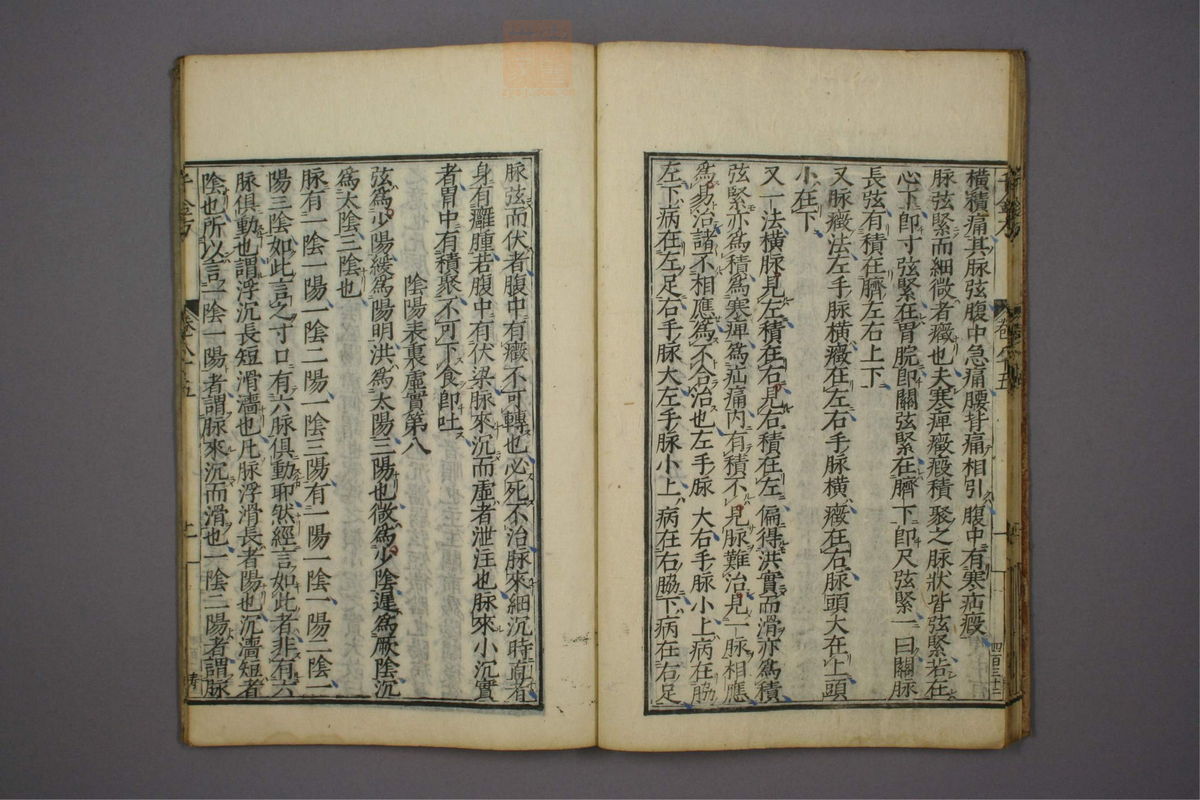 橫積痛其脉弦腹中急痛腰背痛相引腹中有寒疝瘕
脉弦緊而細微者癥也夫寒痺癥瘕積聚之脉狀皆弦緊若在
心下即寸弦緊在胃脘即關弦緊在臍下即尺弦緊一曰關脉
長弦有積在臍左右上下
又脉癥法左手脉橫癥在左右手脉橫癥在右脉頭大在上頭
小在下
又一法橫脉見左積在右見右積在左偏得洪實而滑亦爲積
弦緊亦爲積爲寒痺爲疝痛內有積不見脉難治見一脉相應
爲易治諸不相應爲不合治也左手脉大右手脉小上病在脇
左下病在左足右手脉大左手脉小上病在右脇下病在右足
脉弦而伏者腹中有癥不可轉也必死不治脉來細沉時直者
身有癰腫若腹中有伏梁脉來沉而虛者泄注也脉來小沉實
者胃中有積聚不可下食即吐
陰陽表裏虛實第八
弦爲少陽緩爲陽明洪爲太陽三陽也微爲少陰遲爲厥陰沉
爲太陰三陰也
脉有一陰一陽一陰二陽一陰三陽有一陽一陰一陽二陰一
陽三陰如此言之寸口有六脉俱動耶然經言如此者非有六
脉俱動也謂浮沉長短滑濇也凡脉浮滑長者陽也沉濇短者
陰也所以言一陰一陽者謂脉來沉而滑也一陰二陽者謂脉